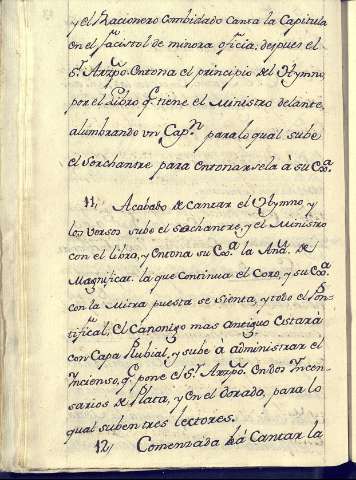 y el Racionero Combidado Canta la Capitula
en el facistol de minora oficia, despues el
S.r Arzpo. Entona el principio del Hymno,
por el Libro q.e tiene el Ministro delante,
alumbrando vn Cap.n para lo qual sube
el Sorchantre para entonarsela à su
11, Acabado de Cantar el Hymno, y
los versos sube el sochantre, y el Ministro
con el libro, y entona su la Ana. de
Magnificat. la que Continua el Coro, y su
con la Mitra puesta se sienta, y todo el Pon-
tifical, El Canonigo mas antiguo Estarà
con Capa Plubial, y sube à administrar el
Incienso, q.e pone el S.r Arzpo. En dos Incen-
sarios de Plata, y en el dorado, para lo
qual suben tres lectores.
12, Comenzada hà Cantar la